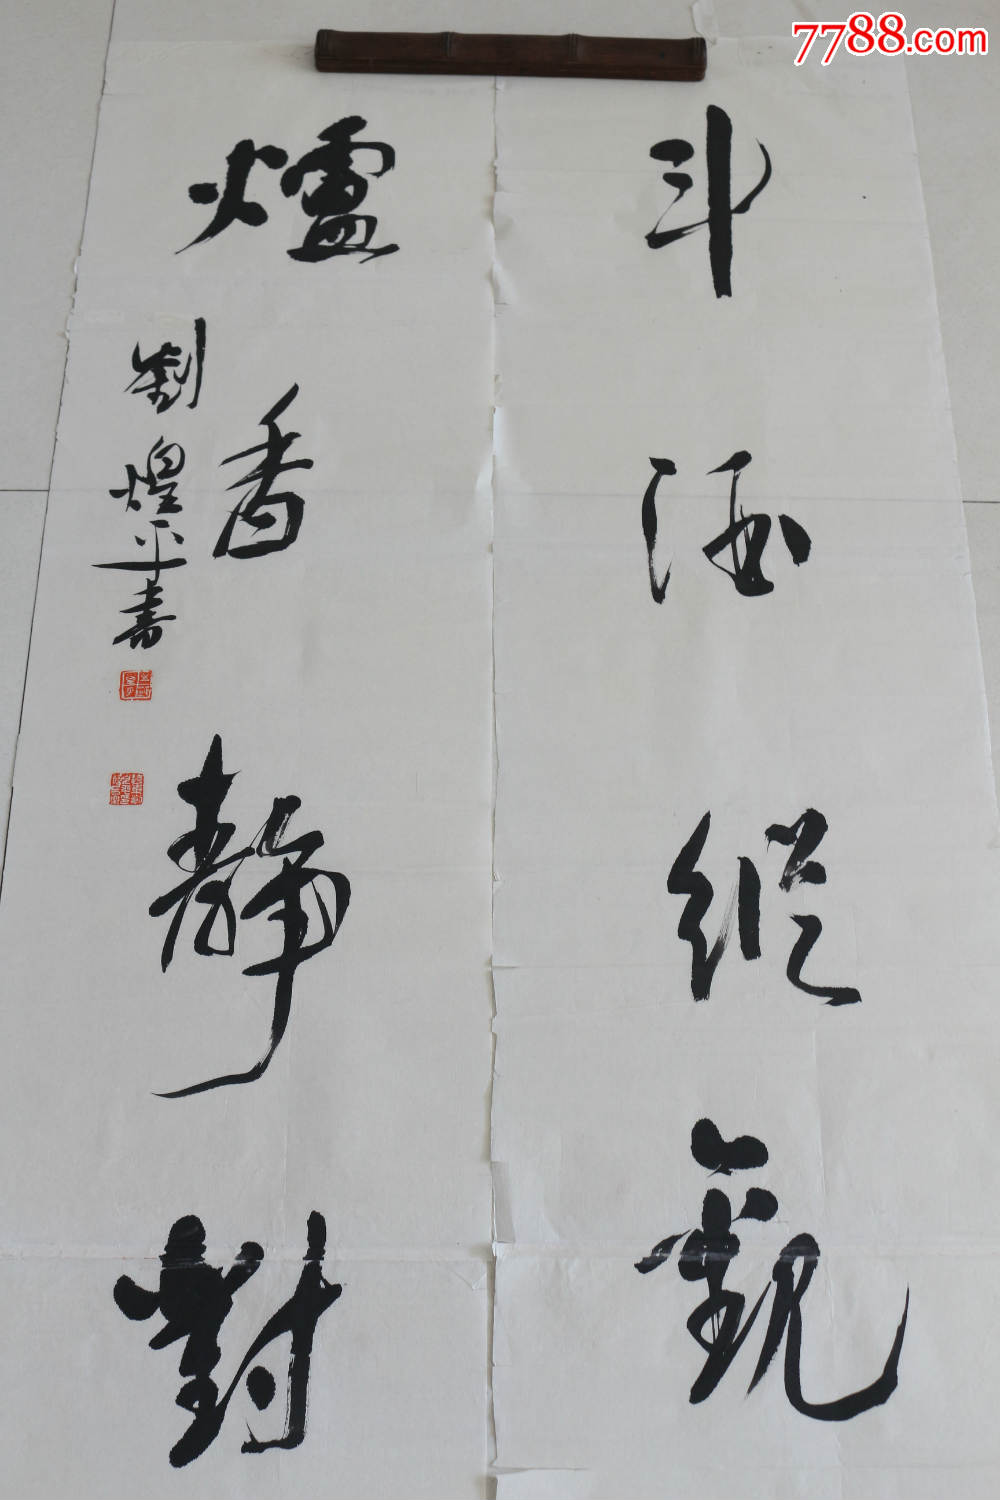 7788.com
斗酒縱觀
爐香静對
劉煌平書